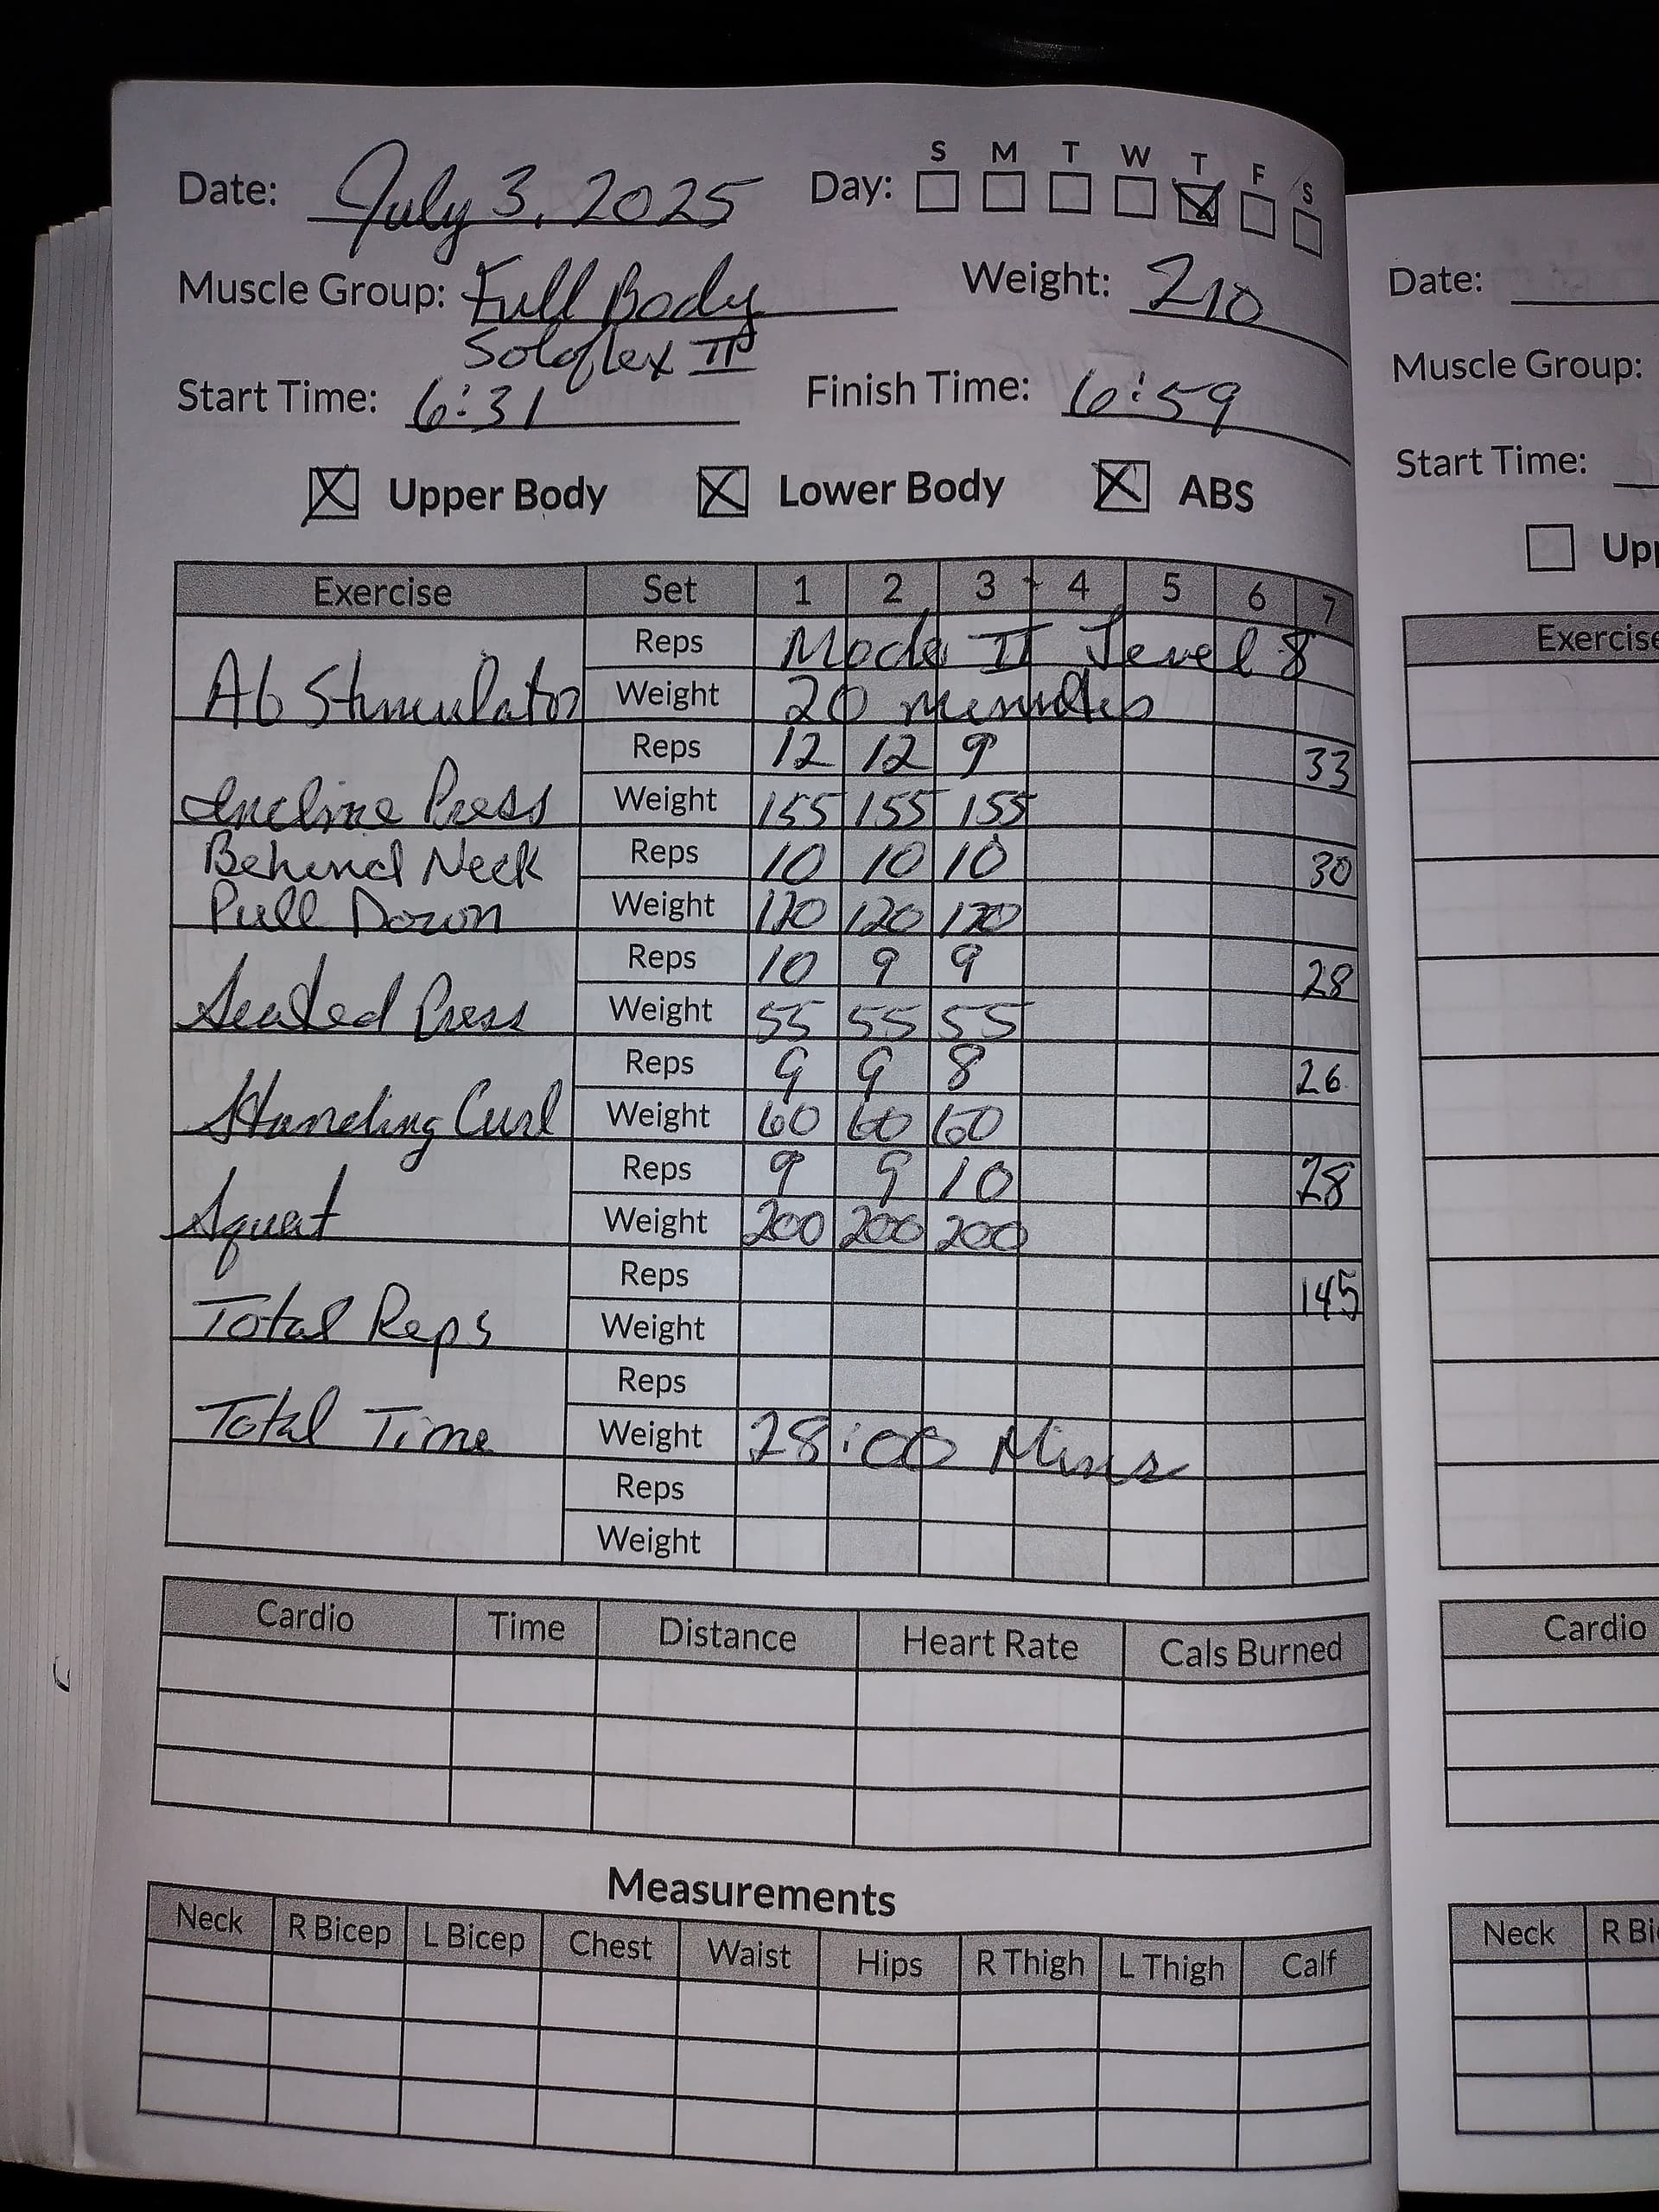 Date: July 3, 2025 Day: S M T W T F S
Muscle Group: Full Body Weight: 210
Soloflex II
Start Time: 6:31 Finish Time: 6:59
Upper Body Lower Body ABS
Exercise Set 1 2 3 4 5 6 7
Reps Mode II Level 8
Ab Stimulator Weight 20 minutes
Reps 12 12 9 33
Incline Press Weight 155 155 155
Behind Neck Reps 10 10 10 30
Pull Down Weight 120 120 120
Reps 10 9 9 28
Seated Press Weight 55 55 55
Reps 9 9 8 26
Standing Curl Weight 60 60 60
Reps 9 9 10 28
Squat Weight 200 200 200
Reps 145
Total Reps Weight
Reps
Total Time Weight 28:00 Mins
Reps
Weight
Cardio Time Distance Heart Rate Cals Burned
Measurements
Neck R Bicep L Bicep Chest Waist Hips R Thigh L Thigh Calf
Date:
Muscle Group:
Start Time:
Upp
Exercise
Cardio
Neck R Bi